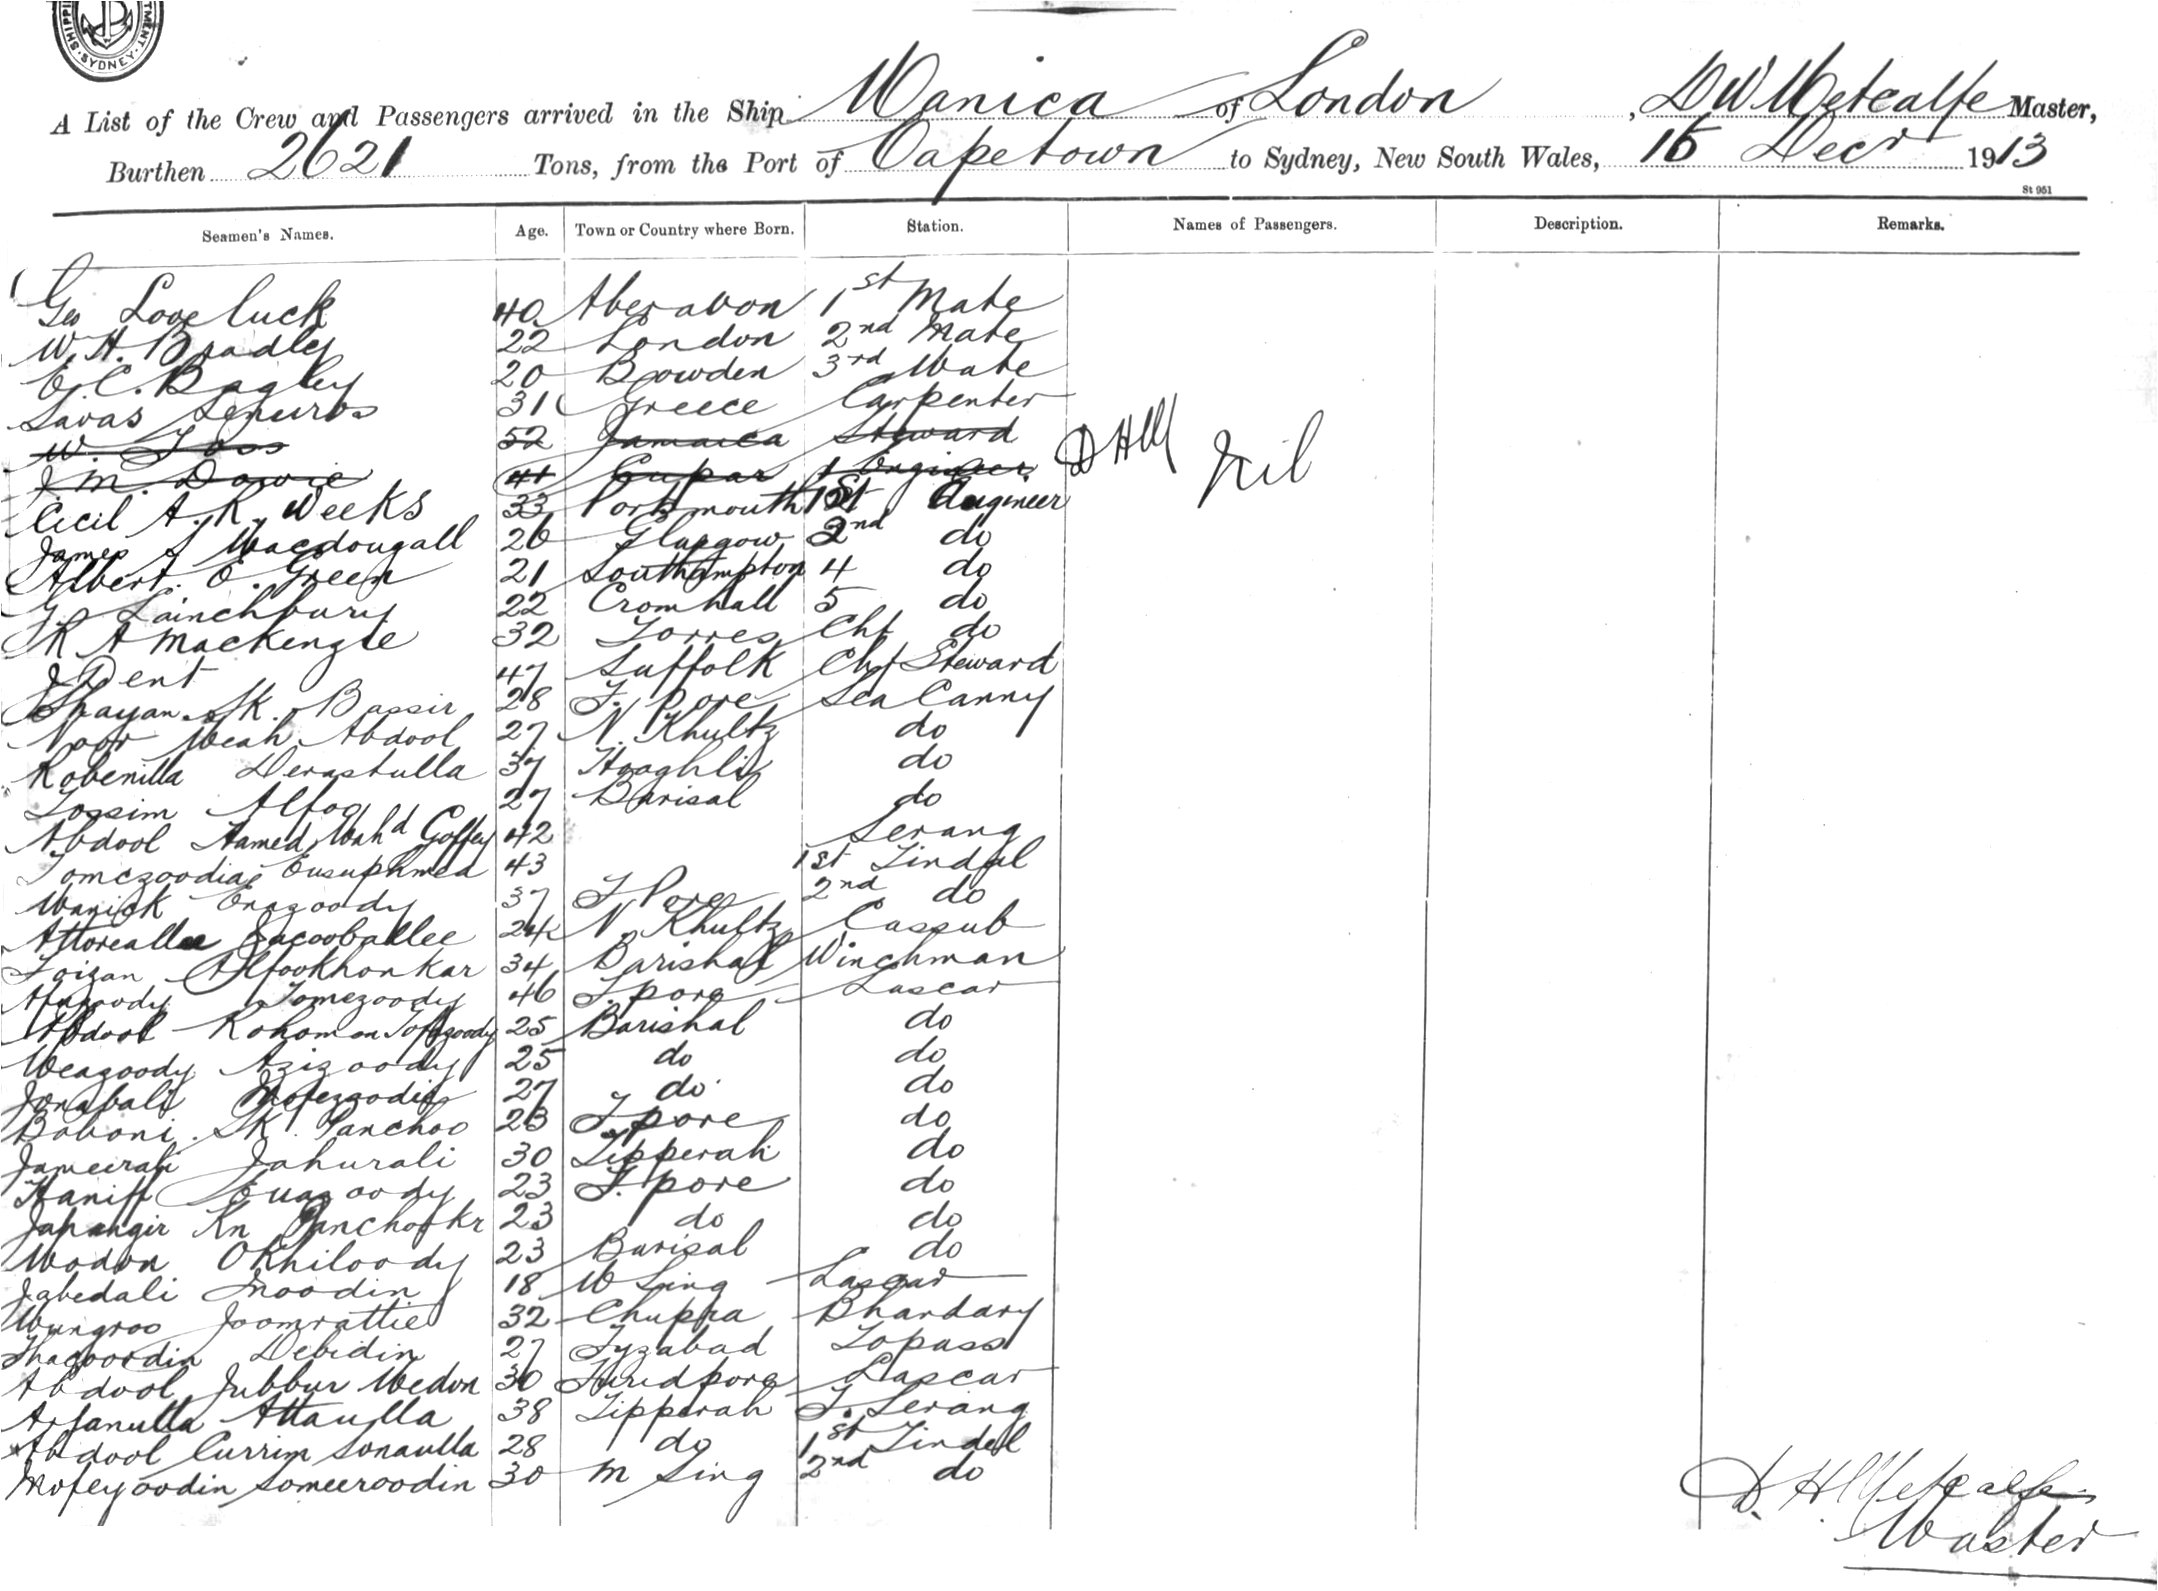 SHIPPI
TMENT
SYDNEY
A List of the Crew and Passengers arrived in the Ship Manica of London, D W Metcalfe Master,
Burthen 2621 Tons, from the Port of Capetown to Sydney, New South Wales, 15 Decr 1913
St 951
Seamen's Names. Age. Town or Country where Born. Station. Names of Passengers. Description. Remarks.
Geo Loveluck 40 Aberavon 1st Mate
W. H. Bradley 22 London 2nd Mate
E. C. Bagley 20 Bowden 3rd Mate
Savas 31 Greece Carpenter
W. 52 Jamaica Steward
J. M. Dowie 41 Cupar 1 Engineer
DHM Nil
Cicil A. R. Weeks 33 Portsmouth 1st Engineer
James Macdougall 26 Glasgow 2nd do
Albert. E. Green 21 Southampton 4 do
G. Lainchbury 22 Cromhall 5 do
R A Mackenzie 32 Forres Chf do
J Dent 47 Suffolk Chf Steward
Shayan Sk. Bassir 28 F. pore Sea Canny
Noor Meah Abdool 27 N. Khultz do
Robenilla Derastulla 37 Hooghli do
Tossim 27 Barisal do
Abdool Hamed Mahd Goffey 42 Serang
Tomezoodia Eusuphmea 43 1st Tindal
Manick Enazoody 37 F Pore 2nd do
Attoreallee Jacooballee 24 N. Khultz Cassub
Foizan Alfookhonkar 34 Barishal Winchman
Tomezoody 46 F. pore Lascar
Abdool Rohoman 25 Barishal do
Meazoody Azizoody 25 do do
Jonabali 27 do do
Baboni Sk. Panchoo 23 F. pore do
Jameerali Jahurali 30 Tipperah do
Haniff 23 F. pore do
Jahangir Kn 23 do do
Modon Okhiloody 23 Barisal do
Jabedali Moodin 18 M Sing Lascar
Mungroo Joomrattie 32 Chupra Bhandary
Thacoordin Debidin 27 Fyzabad Topass
Abdool Jubbur Medon 30 Furidpore Lascar
Arfanulla Attaulla 38 Tipperah F. Serang
Abdool Currim Sonaulla 28 do 1st Tindel
Mofeyoodin Someeroodin 30 M Sing 2nd do
D. H Metcalfe
Master